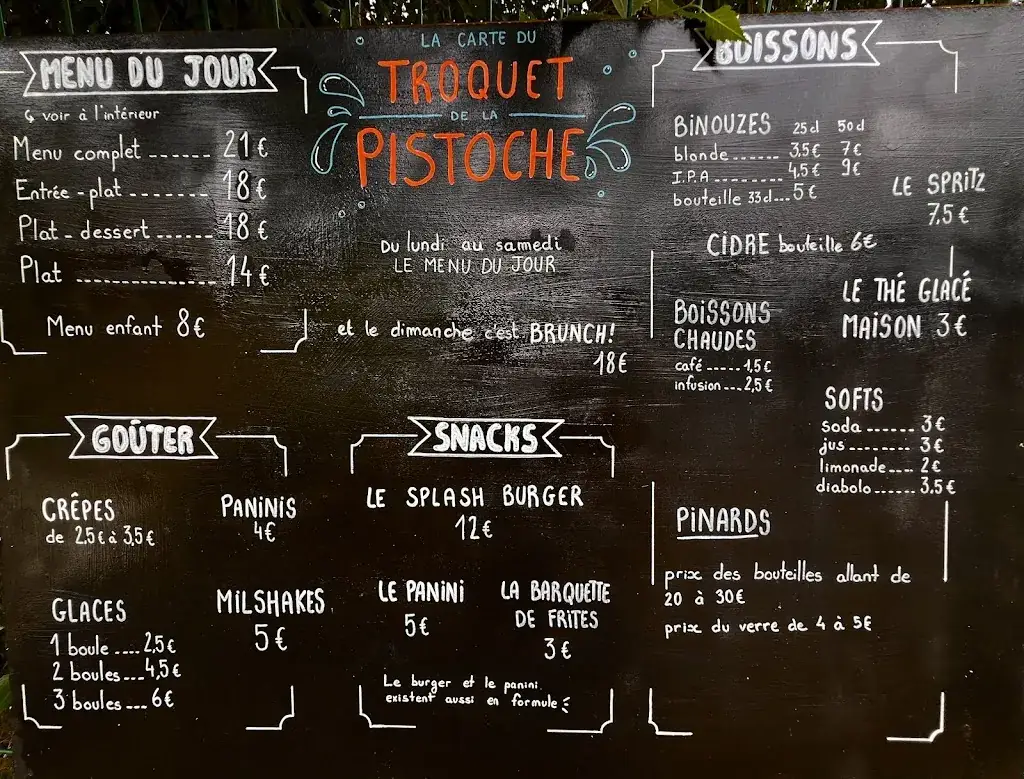 MENU DU JOUR
voir à l'intérieur
Menu complet ------ 21 €
Entrée-plat ------ 18 €
Plat-dessert ------ 18 €
Plat ------------ 14 €
Menu enfant 8€
LA CARTE DU
TROQUET
DE LA
PISTOCHE
Du lundi au samedi
LE MENU DU JOUR
et le dimanche c'est BRUNCH!
18€
BOISSONS
BINOUZES 25cl 50cl
blonde ------ 3,5€ 7€
I.P.A -------- 4,5€ 9€
bouteille 33cl --- 5€
LE SPRITZ
7,5 €
CIDRE bouteille 6€
LE THÉ GLACÉ
MAISON 3€
BOISSONS
CHAUDES
café ----- 1,5€
infusion --- 2,5€
SOFTS
soda ------ 3€
jus -------- 3€
limonade ---- 2€
diabolo ------ 3.5€
PINARDS
prix des bouteilles allant de
20 à 30€
prix du verre de 4 à 5€
GOÛTER
CRÊPES
de 2,5€ à 3,5€
PANINIS
4€
GLACES
1 boule .... 2,5€
2 boules --- 4,5€
3 boules --- 6€
MILSHAKES
5€
SNACKS
LE SPLASH BURGER
12€
LE PANINI
5€
LA BARQUETTE
DE FRITES
3€
Le burger et le panini
existent aussi en formule